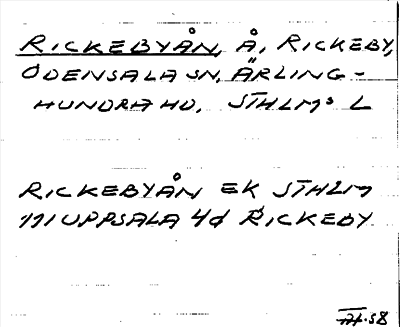 RICKEBYÅN, Å, RICKEBY,
ODENSALA SN, ÄRLING-
HUNDRA HD, STHLMS L
RICKEBYÅN EK STHLM
111 UPPSALA 4d RICKEBY
58